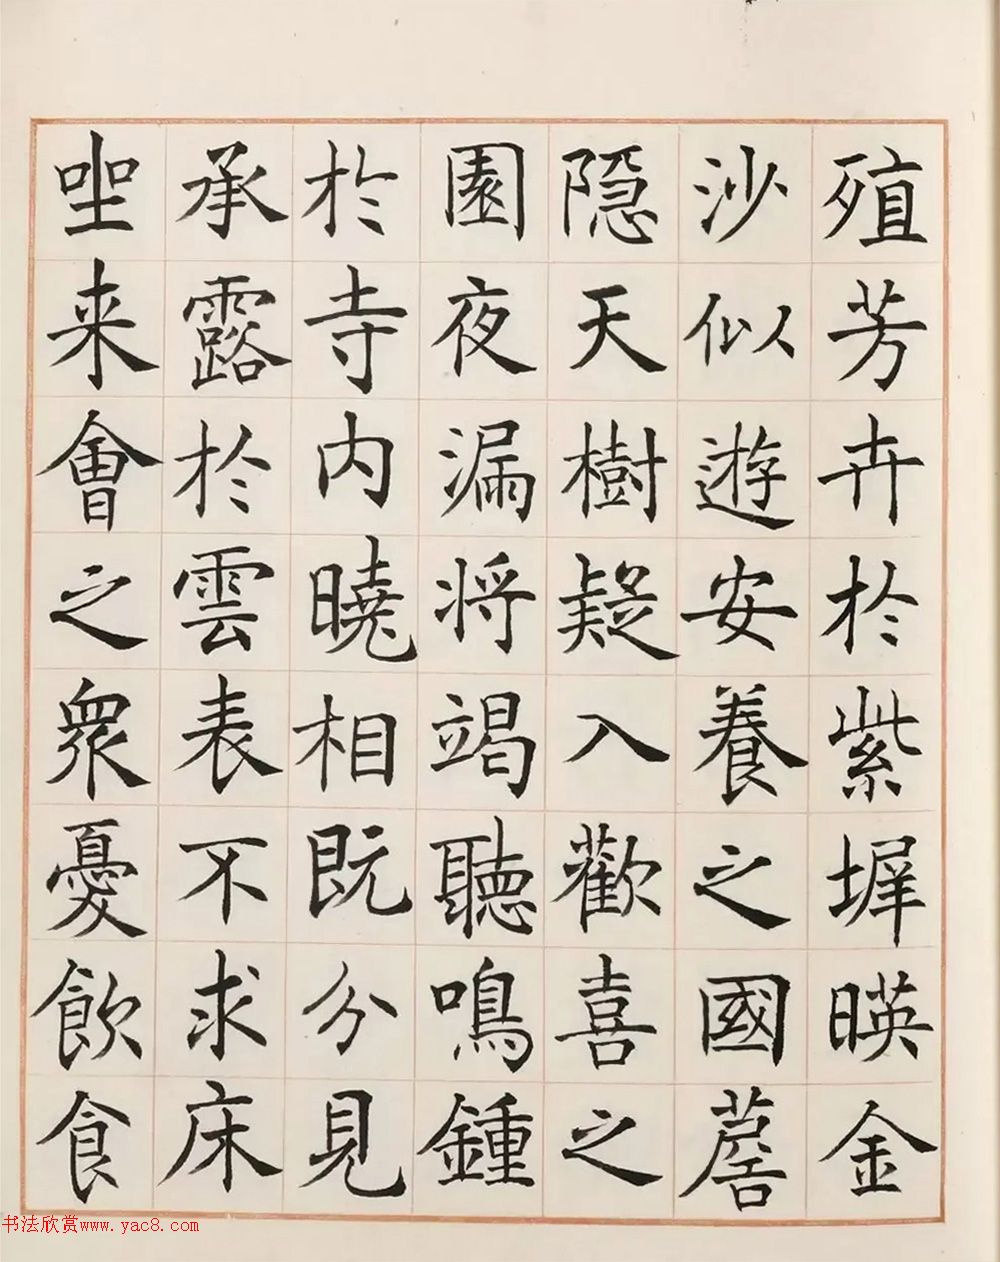 殖芳卉於紫墀暎金
沙似遊安養之國簷
隱天樹疑入歡喜之
園夜漏将竭聽鳴鍾
於寺内曉相既分見
承露於雲表不求床
坐来會之衆憂飲食
书法欣赏www.yac8.com